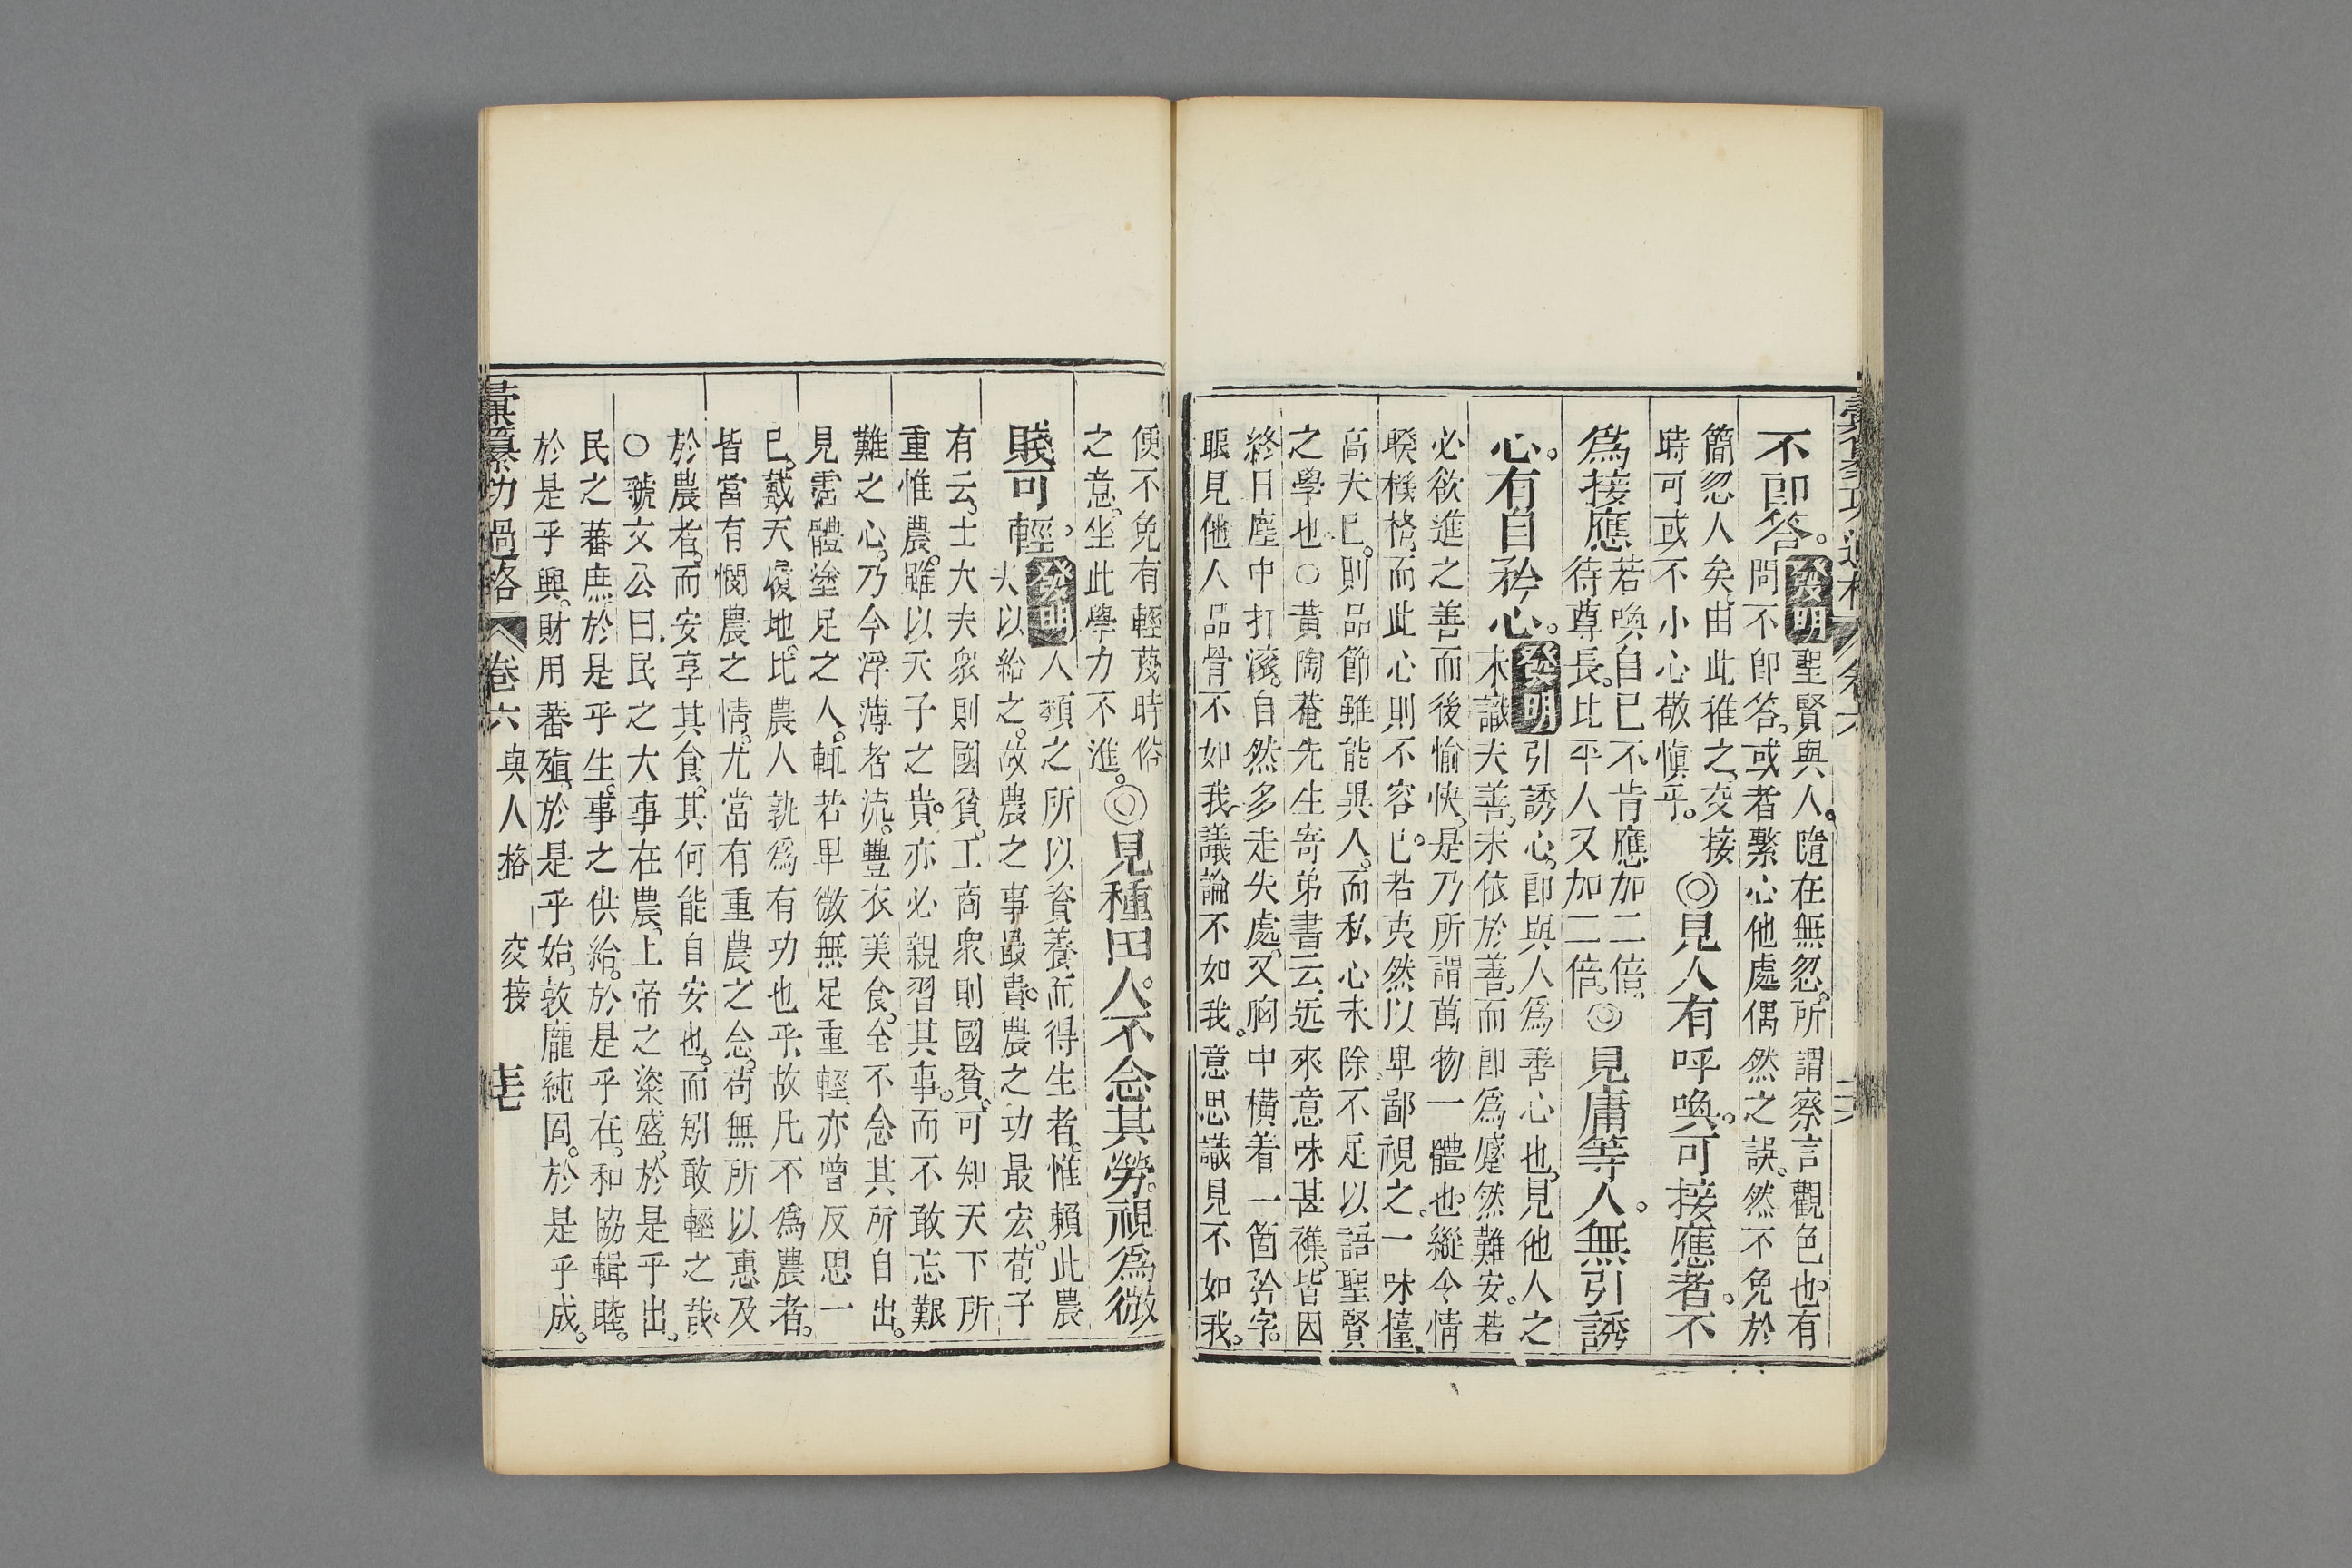 不卽答。發明聖賢與人。隨在無忽。所謂察言觀色也。有
問不卽答。或者繫心他處。偶然之誤。然不免於
簡忽人矣。由此推之。交接
時可或不小心敬愼乎。◎見人有呼喚。可接應者。不
爲接應若喚自己。不肯應加二倍。
待尊長。比平人又加二倍。◎見庸等人。無引誘
心。有自矜心。發明引誘心。卽與人爲善心也。見他人之
未識夫善。未依於善。而卽爲蹙然難安。若
必欲進之善而後愉快。是乃所謂萬物一體也。縱令情
睽機格。而此心則不容已。若夷然以卑鄙視之。一味
高夫已。則品節雖能異人。而私心未除。不足以語聖賢
之學也。○黃陶菴先生寄弟書云。近來意味甚襍。皆因
終日塵中打滾。自然多走失處。又胸中橫着一箇矜字。
眼見他人品骨不如我。議論不如我。意思識見不如我。
便不免有輕蔑時俗
之意。坐此學力不進。◎見種田人。不念其勞。視爲微
賤可輕。發明人類之所以資養而得生者。惟賴此農
夫以給之。故農之事最貴。農之功最宏。荀子
有云。士大夫衆則國貧。工商衆則國貧。可知天下所
重惟農。雖以天子之貴。亦必親習其事。而不敢忘艱
難之心。乃今浮薄者流。豐衣美食。全不念其所自出。
見霑體塗足之人。輒若卑微無足重輕。亦曾反思一
已。戴天履地。比農人孰爲有功也乎。故凡不爲農者。
皆當有憫農之情。尤當有重農之念。苟無所以惠及
於農者。而安享其食。其何能自安也。而矧敢輕之哉。
○虢文公曰。民之大事在農。上帝之粢盛。於是乎出。
民之蕃庶。於是乎生。事之供給。於是乎在。和協輯睦。
於是乎興。財用蕃殖。於是乎始。敦龐純固。於是乎成。
彙纂功過格 卷六 與人格 交接